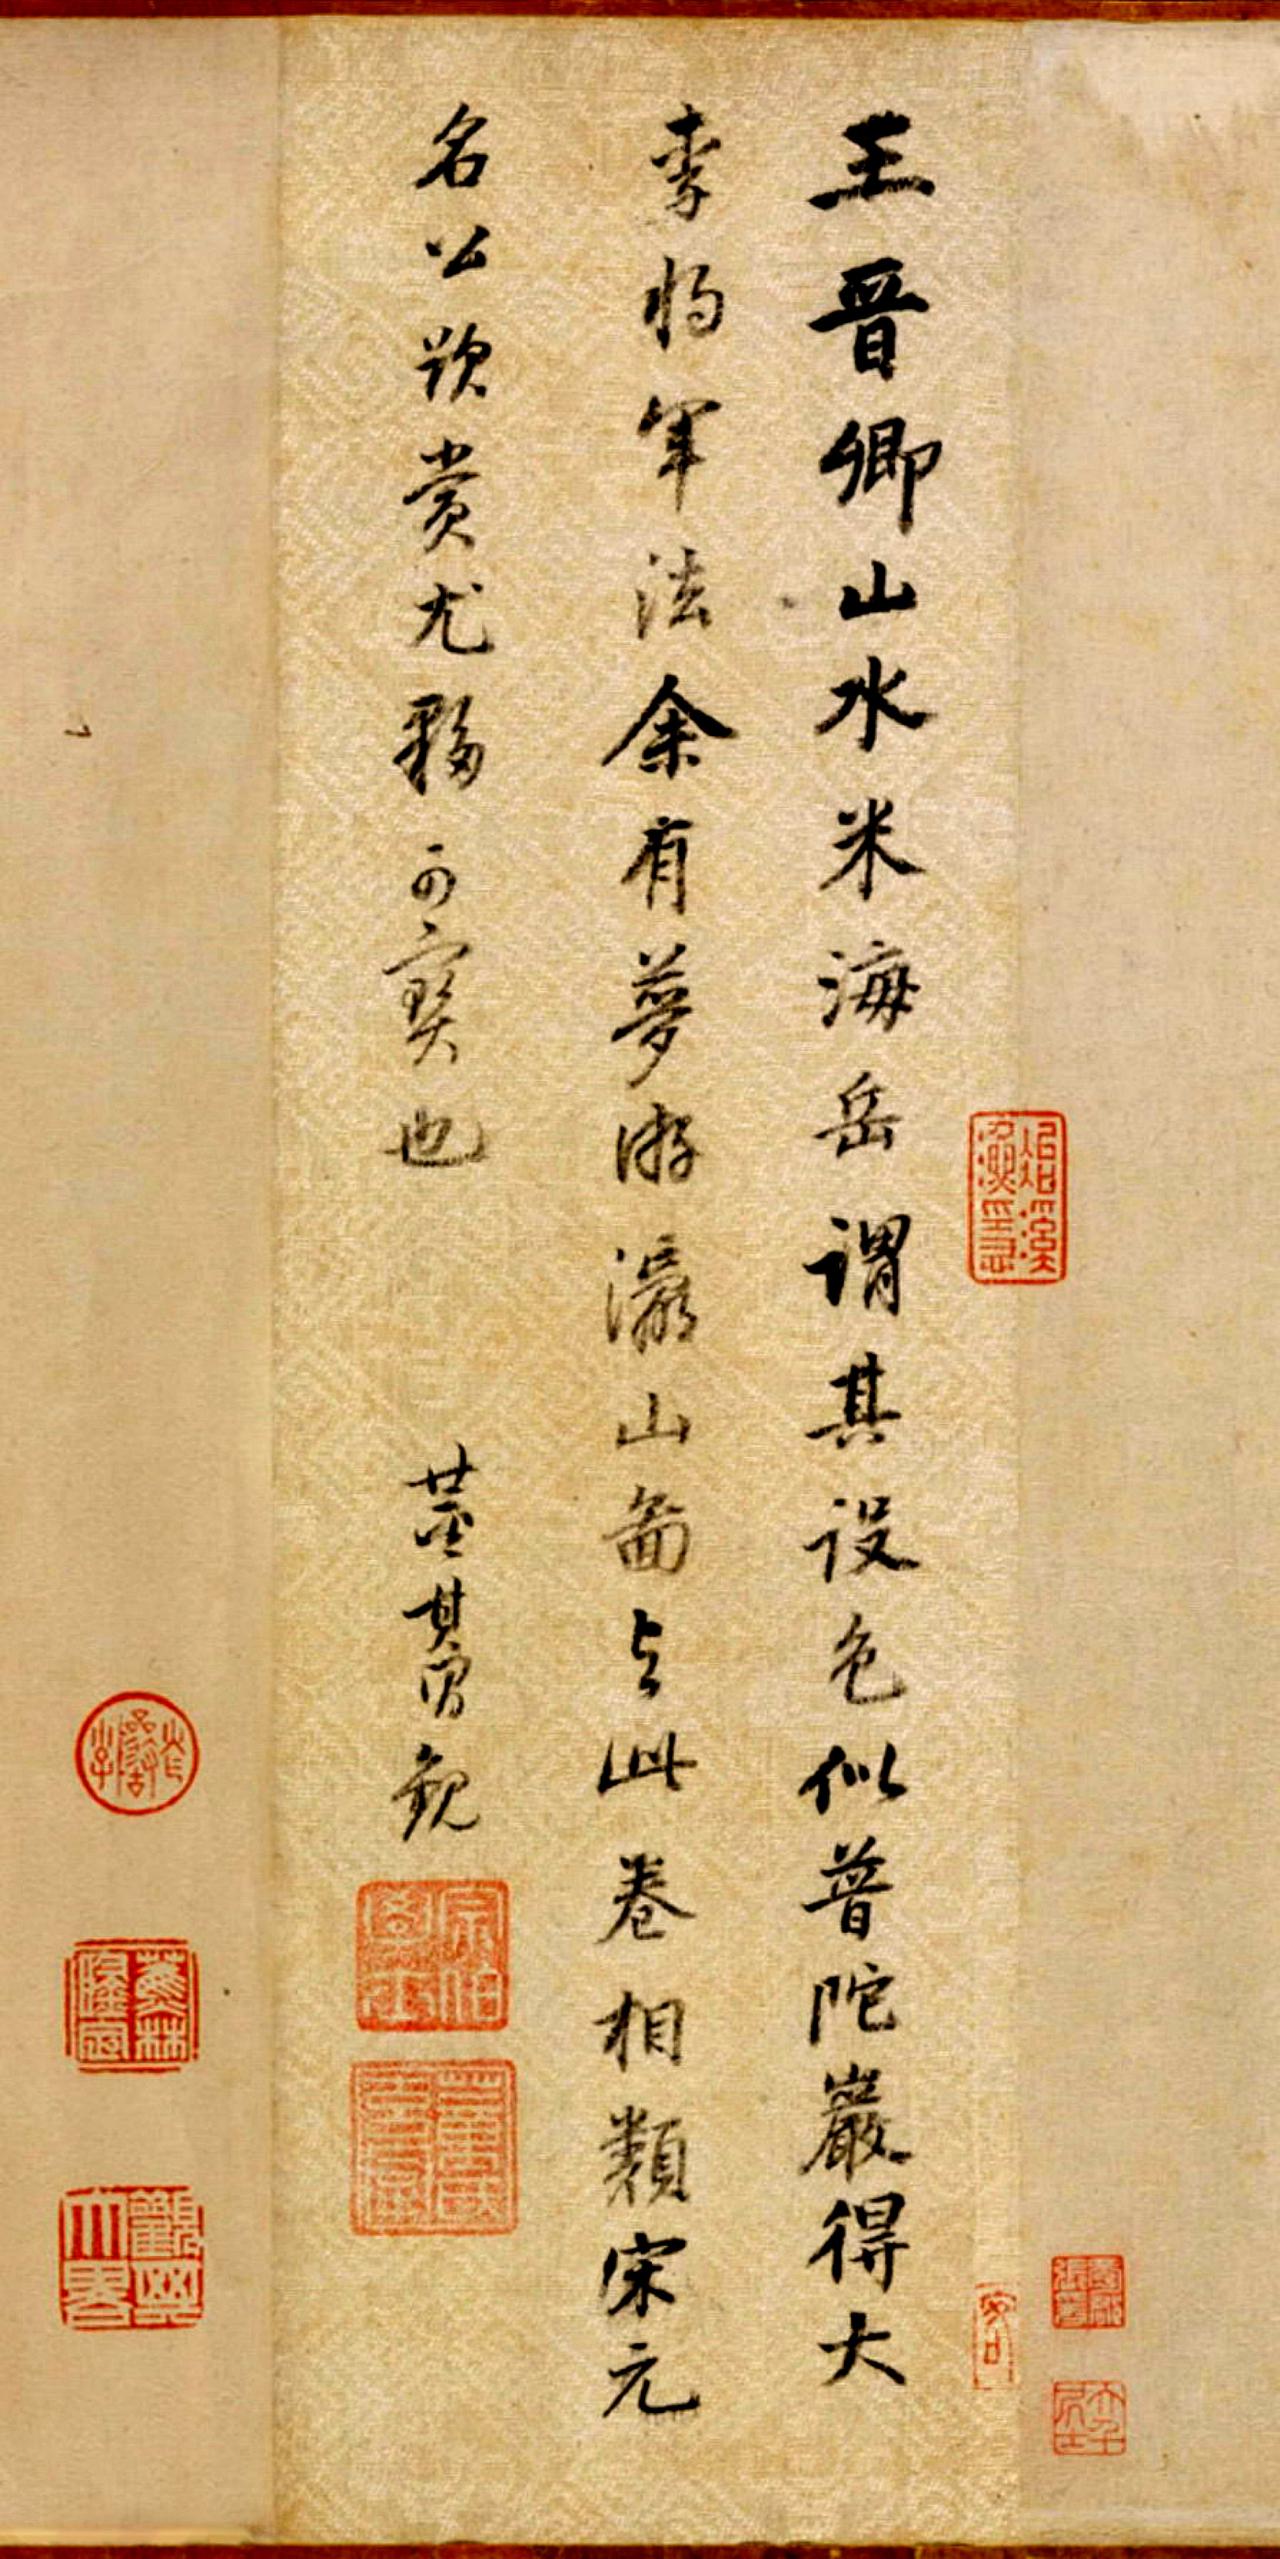 王晉卿山水米海岳謂其设色似普陀巖得大
李将軍法余有夢游瀛山啚与此卷相類宋元
名公題賞尤夥可寶也 董其昌觀
蕉林